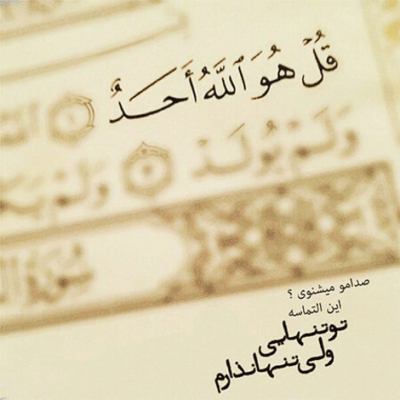 قُلْ هُوَ ٱللَّهُ أَحَدٌ ١
وَلَمْ يُولَدْ ٣ وَلَمْ
سُورَةُ
صدامو میشنوی ؟
این التماسه
تو تنهایی
ولی تنها نذارم